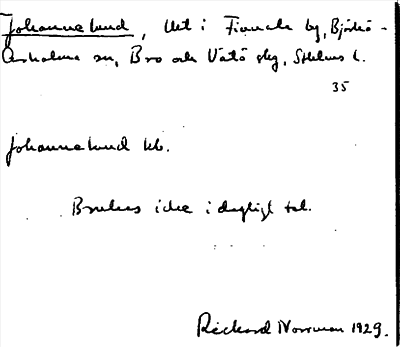 Johannelund, lht i Finnala by, Björkö-
Arholma sn, Bro och Vätö skg, Sthlms l.
35
Johannelund lht.
Brukas icke i dagligt tal.
Rickard Norrman 1929.